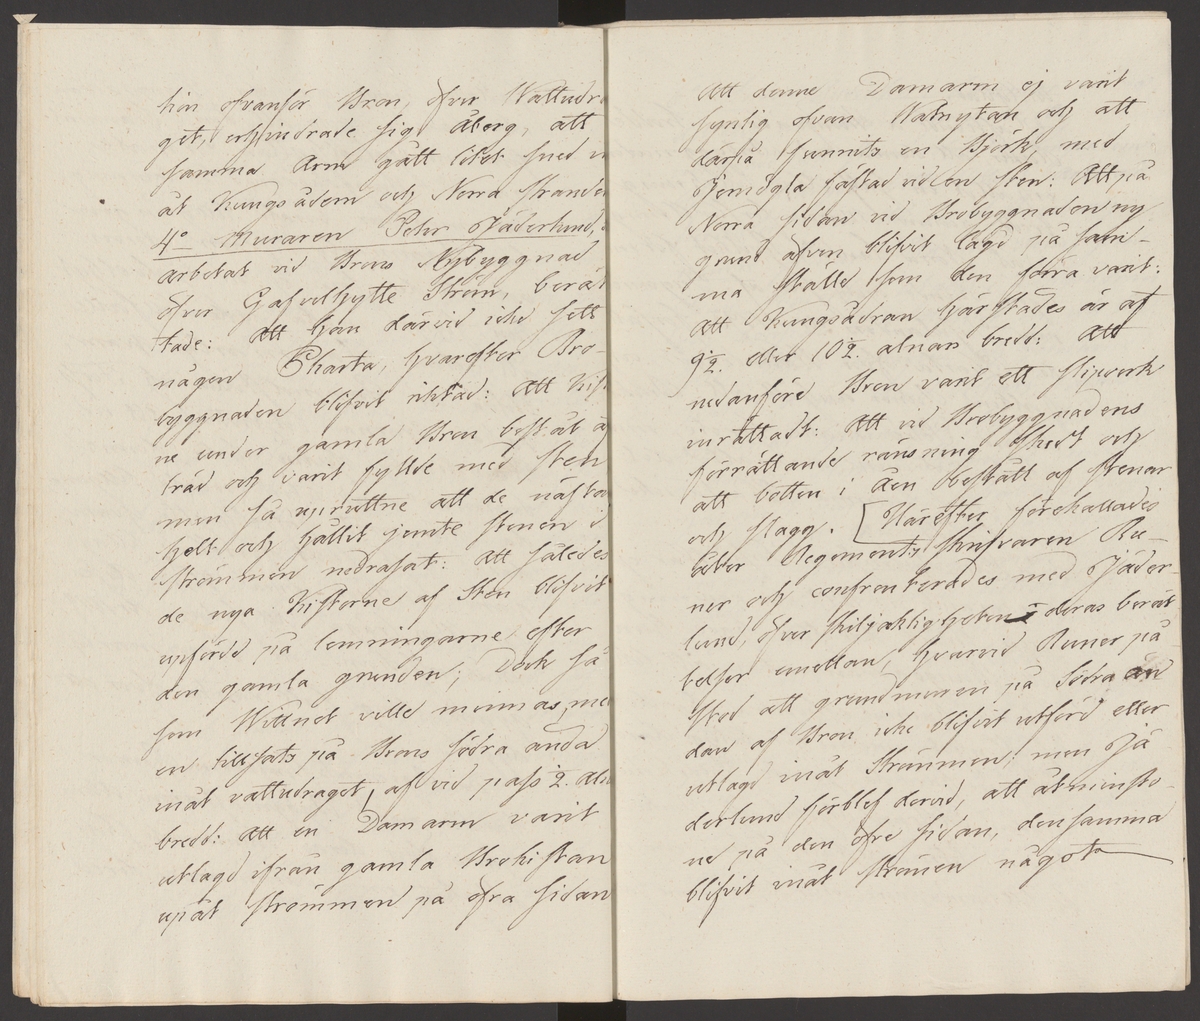 hin ofvanför Bron, öfver Wattudra
get, erhindrade sig Åberg, att
samma Arm gått litet sned
åt Kungsådern och Norra stranden
4:o Muraren Pehr Jäderlund,
arbetat vid Brons Nybyggnad
öfver Gafvelhytte Ström, berät
tade: Att han därvid icke sett
någon Charta, hvarefter Bro-
byggnaden blifvit rättad: Att Kist
ne under gamla Bron bestått af
träd och varit fyllde med sten
men så upruttne att de nästan
helt och hållit jemte stenen i
strömmen nedrasat: Att således
de nya Kistorne af Sten blifvit
upförde på lemningarne efter
den gamla grunden; Dock så
som Wittnet ville minnas, med
en tillsats på Brons södra ända
inåt vattudraget, af vid pass 2. aln
bredd: Att en Damarm varit
utlagd ifrån gamla Brokistan
upåt strömmen på öfra sidan
Att denne Damarm ej varit
synlig ofvan Vatnytan och att
därpå funnits en Björk, med
Jernögla fästad vid en sten: Att på
Norra sidan vid Brobyggnaden ny
grund äfven blifvit lagd på sam-
ma ställe som den förra varit:
Att Kungsådran härstädes är af
9½. eller 10½. alnars bredd: Att
nedanföre Bron varit ett slipverk
inrättadt: Att vid Brobyggnadens
förrättande ränsning skedt och
att botten i åen bestått af stenar
och slagg. [Härefter förekallades
åter Regements Skrifvaren Ru-
ner och confronterades med Jäder-
lund, öfver skiljaktligheten i deras berät
telser emellan, hvarvid Runer på
stod att grundmuren på Södra än
dan af Bron icke blifvit utförd eller
utlagd inåt Strömmen: men Jä
derlund förblef dervid, att åtminsto-
ne på den öfre sidan, densamma
blifvit inåt strömen något